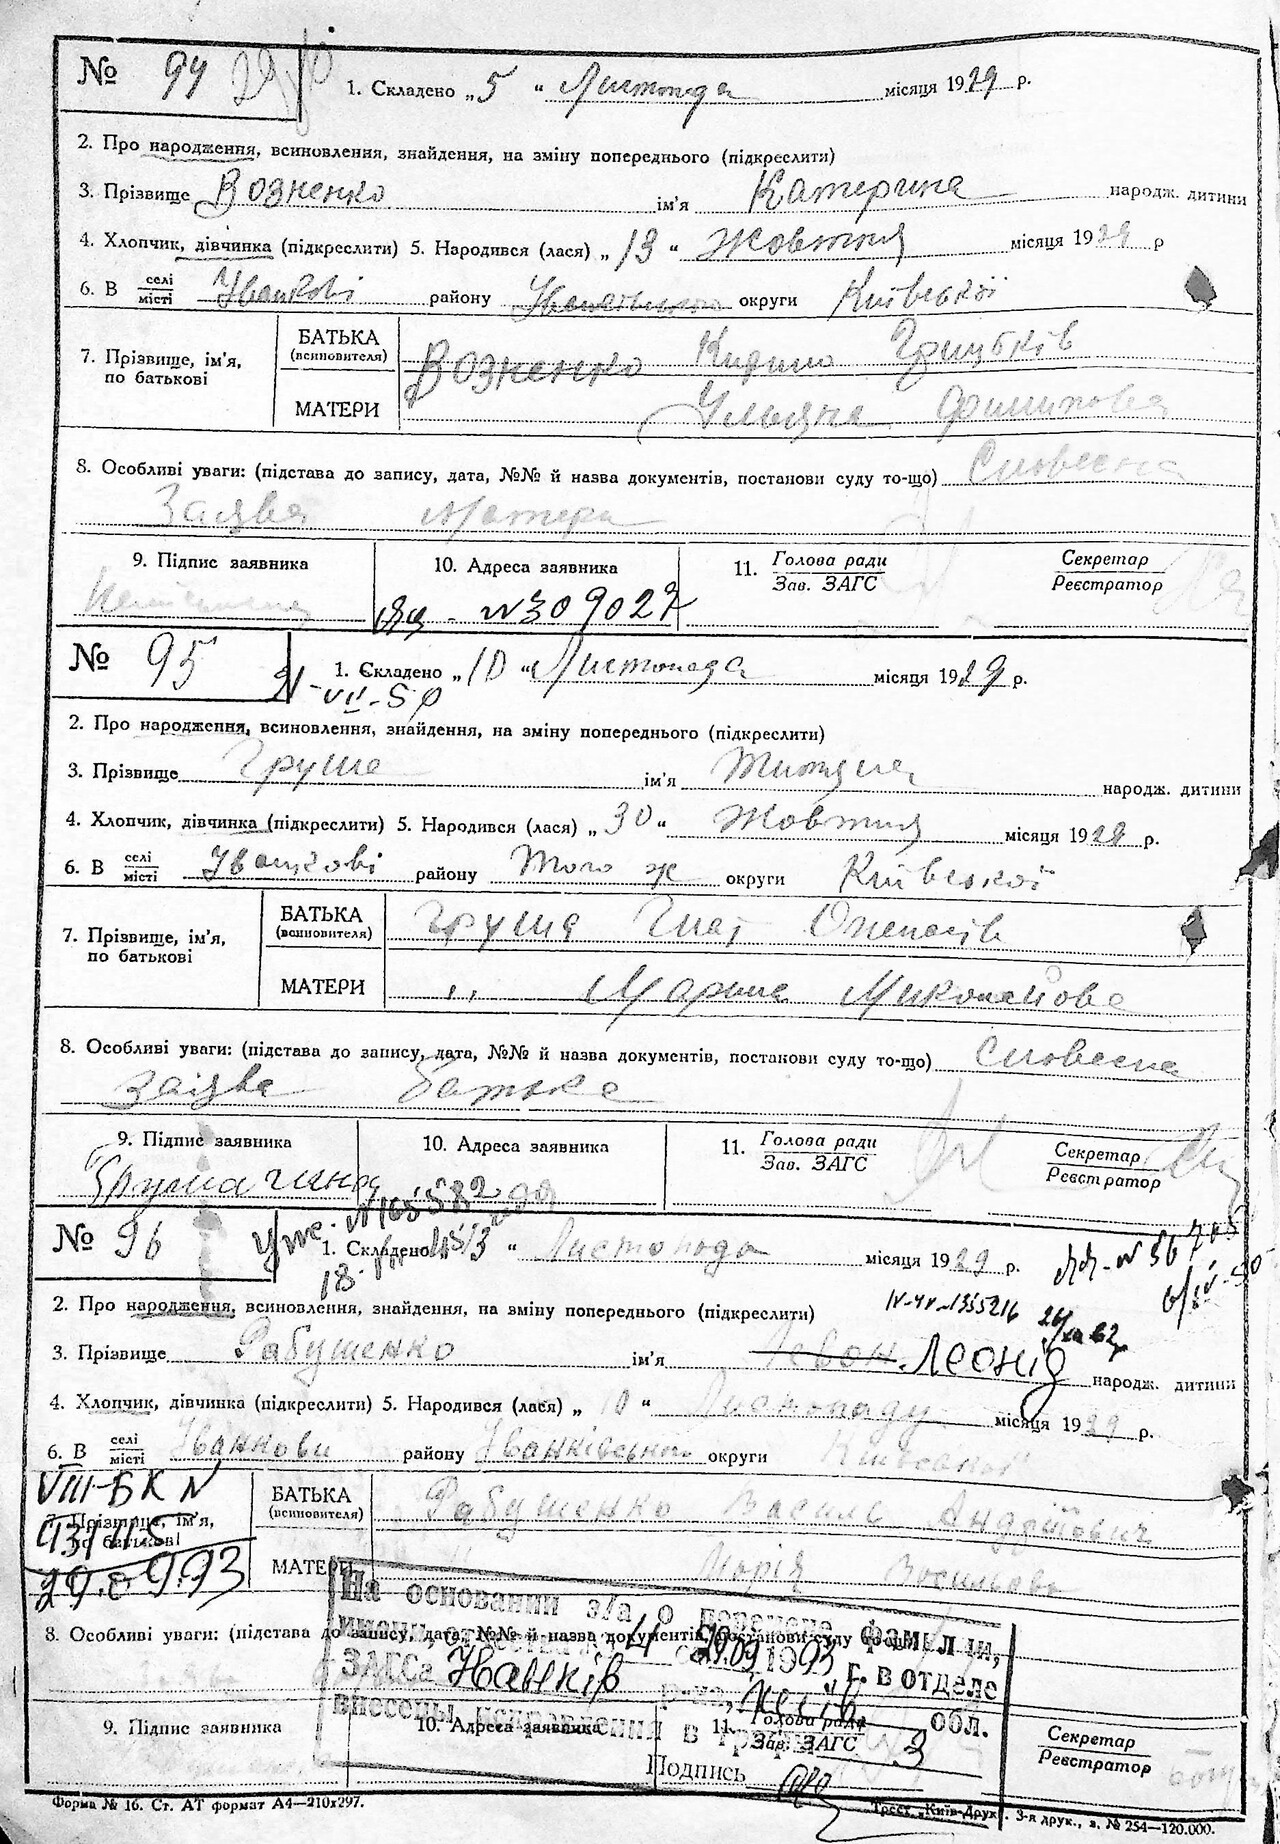 № 94 1. Складено „5“ Листопада місяця 1929 р.
2. Про народження, всиновлення, знайдення, на зміну попереднього (підкреслити)
3. Прізвище Возненко ім'я Катерина народж. дитини
4. Хлопчик, дівчинка (підкреслити) 5. Народився (лася) „13“ Жовтня місяця 1929 р
6. В селі місті Іванкові району округи Київської
7. Прізвище, ім'я, по батькові
БАТЬКА (всиновителя) Возненко Кирило Грицьків
МАТЕРИ Ульяна Филипова
8. Особливі уваги: (підстава до запису, дата, №№ й назва документів, постанови суду то-що) Словесна
Заява Матери
9. Підпис заявника 10. Адреса заявника 11. Голова ради Зав. ЗАГС Секретар Реєстратор
N309027
№ 95 1. Складено „10“ Листопада місяця 1929 р.
VII-50
2. Про народження, всиновлення, знайдення, на зміну попереднього (підкреслити)
3. Прізвище Груша ім'я народж. дитини
4. Хлопчик, дівчинка (підкреслити) 5. Народився (лася) „30“ Жовтня місяця 1929 р.
6. В селі місті Іванкові району Того ж округи Київської
7. Прізвище, ім'я, по батькові
БАТЬКА (всиновителя) Груша Гнат
МАТЕРИ „ Марина Миколайова
8. Особливі уваги: (підстава до запису, дата, №№ й назва документів, постанови суду то-що) Словесна
заява батька
9. Підпис заявника 10. Адреса заявника 11. Голова ради Зав. ЗАГС Секретар Реєстратор
№ 96 1. Складено „13“ Листопода місяця 1929 р.
2. Про народження, всиновлення, знайдення, на зміну попереднього (підкреслити)
3. Прізвище Рабушенко ім'я Леонід народж. дитини
4. Хлопчик, дівчинка (підкреслити) 5. Народився (лася) „10“ Листопаду місяця 1929 р.
6. В селі місті Іванкови району Іванківського округи Київської
VIII-БК N
7. Прізвище, ім'я, по батькові
29.09.93
БАТЬКА (всиновителя) Рабушенко Василь Андрійович
МАТЕРИ Марія Васильова
8. Особливі уваги: (підстава до запису, дата, №№ й назва документів, постанови суду то-що)
На основании з/а о перемене фамилии,
имени, отчества 4 29.09 1993 г. в отделе
ЗАГСа Іванків р-на, Київ обл.
внесены исправления в графы 3
Подпись
9. Підпис заявника 10. Адреса заявника 11. Голова ради Зав. ЗАГС Секретар Реєстратор
Форма № 16. Ст. АТ формат А4—210х297. Трест „Київ-Друк“. 3-я друк., з. № 254—120.000.